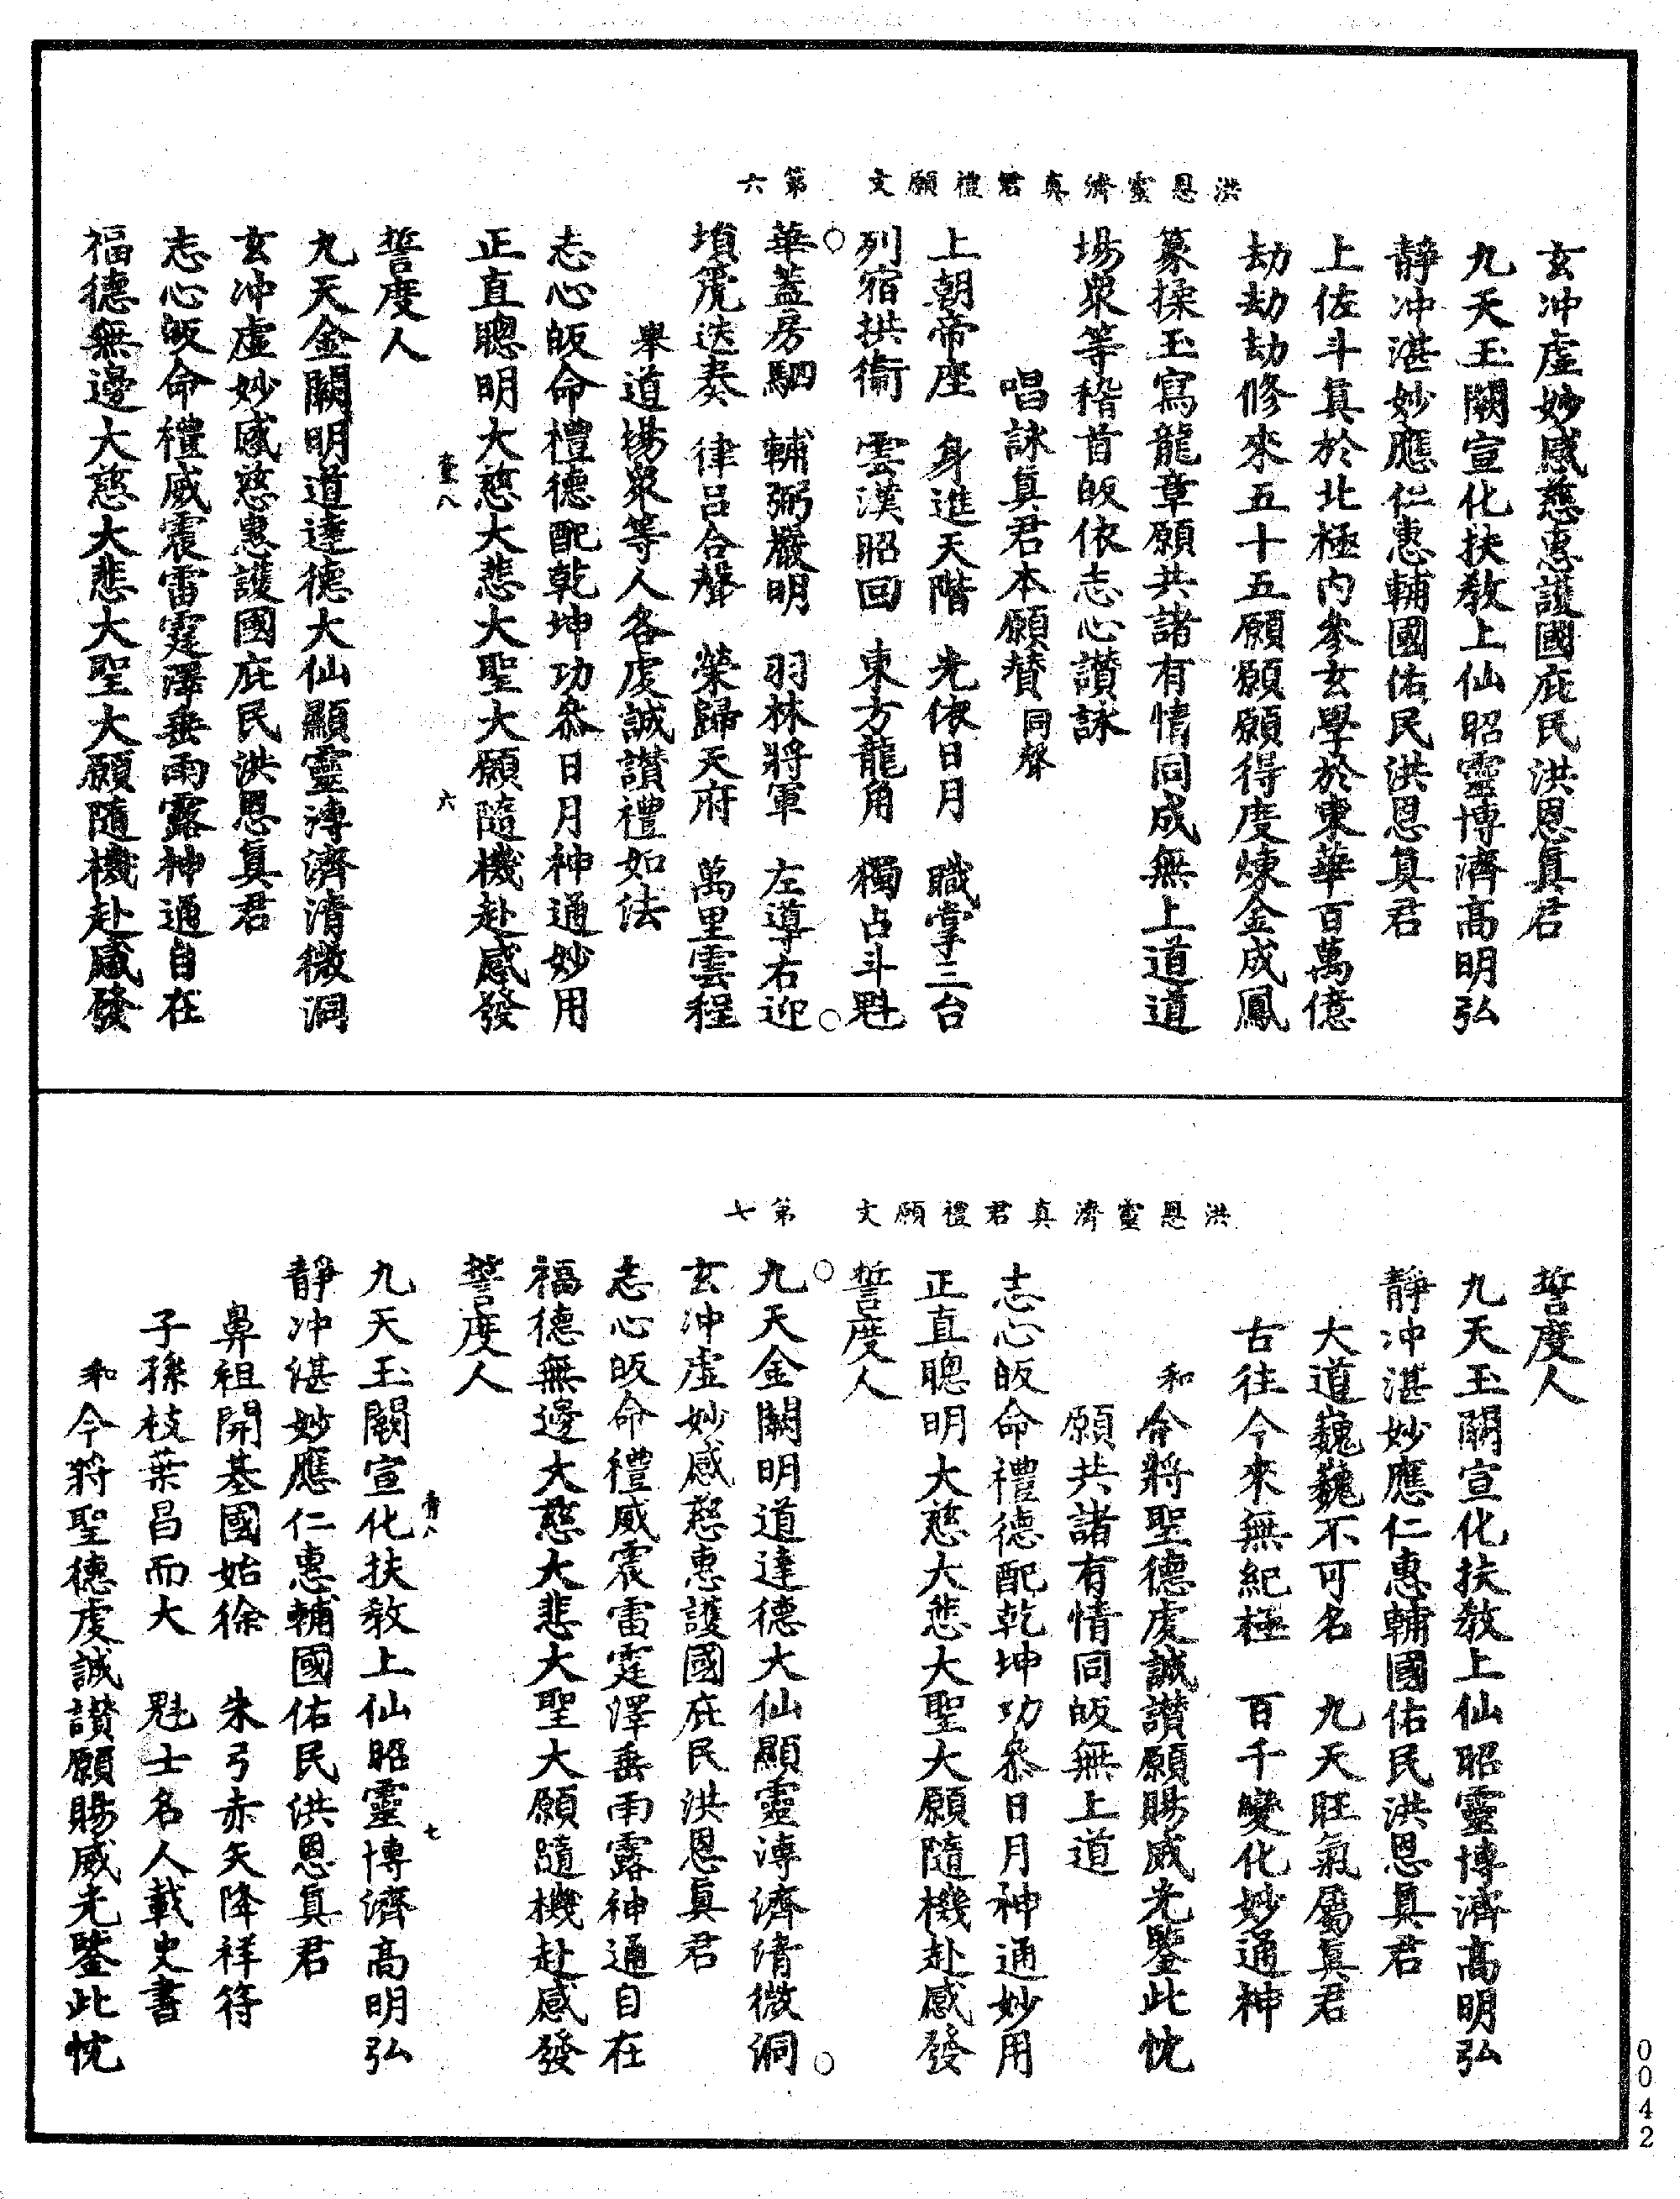 洪恩靈濟真君禮願文　第六
玄冲虛妙感慈惠護國庇民洪恩真君
九天玉闕宣化扶教上仙昭靈博濟高明弘
靜冲湛妙應仁惠輔國佑民洪恩真君
上佐斗真於北極內參玄學於東華百萬億
劫劫劫修來五十五願願願得度煉金成鳳
篆揉玉寫龍章願共諸有情同成無上道道
場衆等稽首皈依志心讚詠
唱詠真君本願賛同聲
上朝帝座　身進天階　光依日月　職掌三台
列宿拱衛　雲漢昭回　東方龍角　獨占斗魁
華蓋房駟　輔弼嚴明　羽林將軍　左導右迎
塤箎迭奏　律呂合聲　榮歸天府　萬里雲程
舉道場衆等人各虔誠讚禮如法
志心皈命禮德配乾坤功叅日月神通妙用
正直聰明大慈大悲大聖大願隨機赴感發
八　六
誓度人
九天金闕明道達德大仙顯靈溥濟清微洞
玄冲虛妙感慈惠護國庇民洪恩真君
志心皈命禮威震雷霆澤垂雨露神通自在
福德無邊大慈大悲大聖大願隨機赴感發
洪恩靈濟真君禮願文　第七
誓度人
九天玉闕宣化扶教上仙昭靈博濟高明弘
靜冲湛妙應仁惠輔國佑民洪恩真君
大道巍巍不可名　九天旺氣屬真君
古往今來無紀極　百千變化妙通神
和今將聖德虔誠讚願賜威光鑒此忱
願共諸有情同皈無上道
志心皈命禮德配乾坤功叅日月神通妙用
正直聰明大慈大悲大聖大願隨機赴感發
誓度人
九天金闕明道達德大仙顯靈溥濟清微洞
玄冲虛妙感慈惠護國庇民洪恩真君
志心皈命禮威震雷霆澤垂雨露神通自在
福德無邊大慈大悲大聖大願隨機赴感發
誓度人
八　七
九天玉闕宣化扶教上仙昭靈博濟高明弘
靜冲湛妙應仁惠輔國佑民洪恩真君
鼻祖開基國始徐　朱弓赤矢降祥符
子孫枝葉昌而大　魁士名人載史書
和今將聖德虔誠讚願賜威光鑒此忱
0042